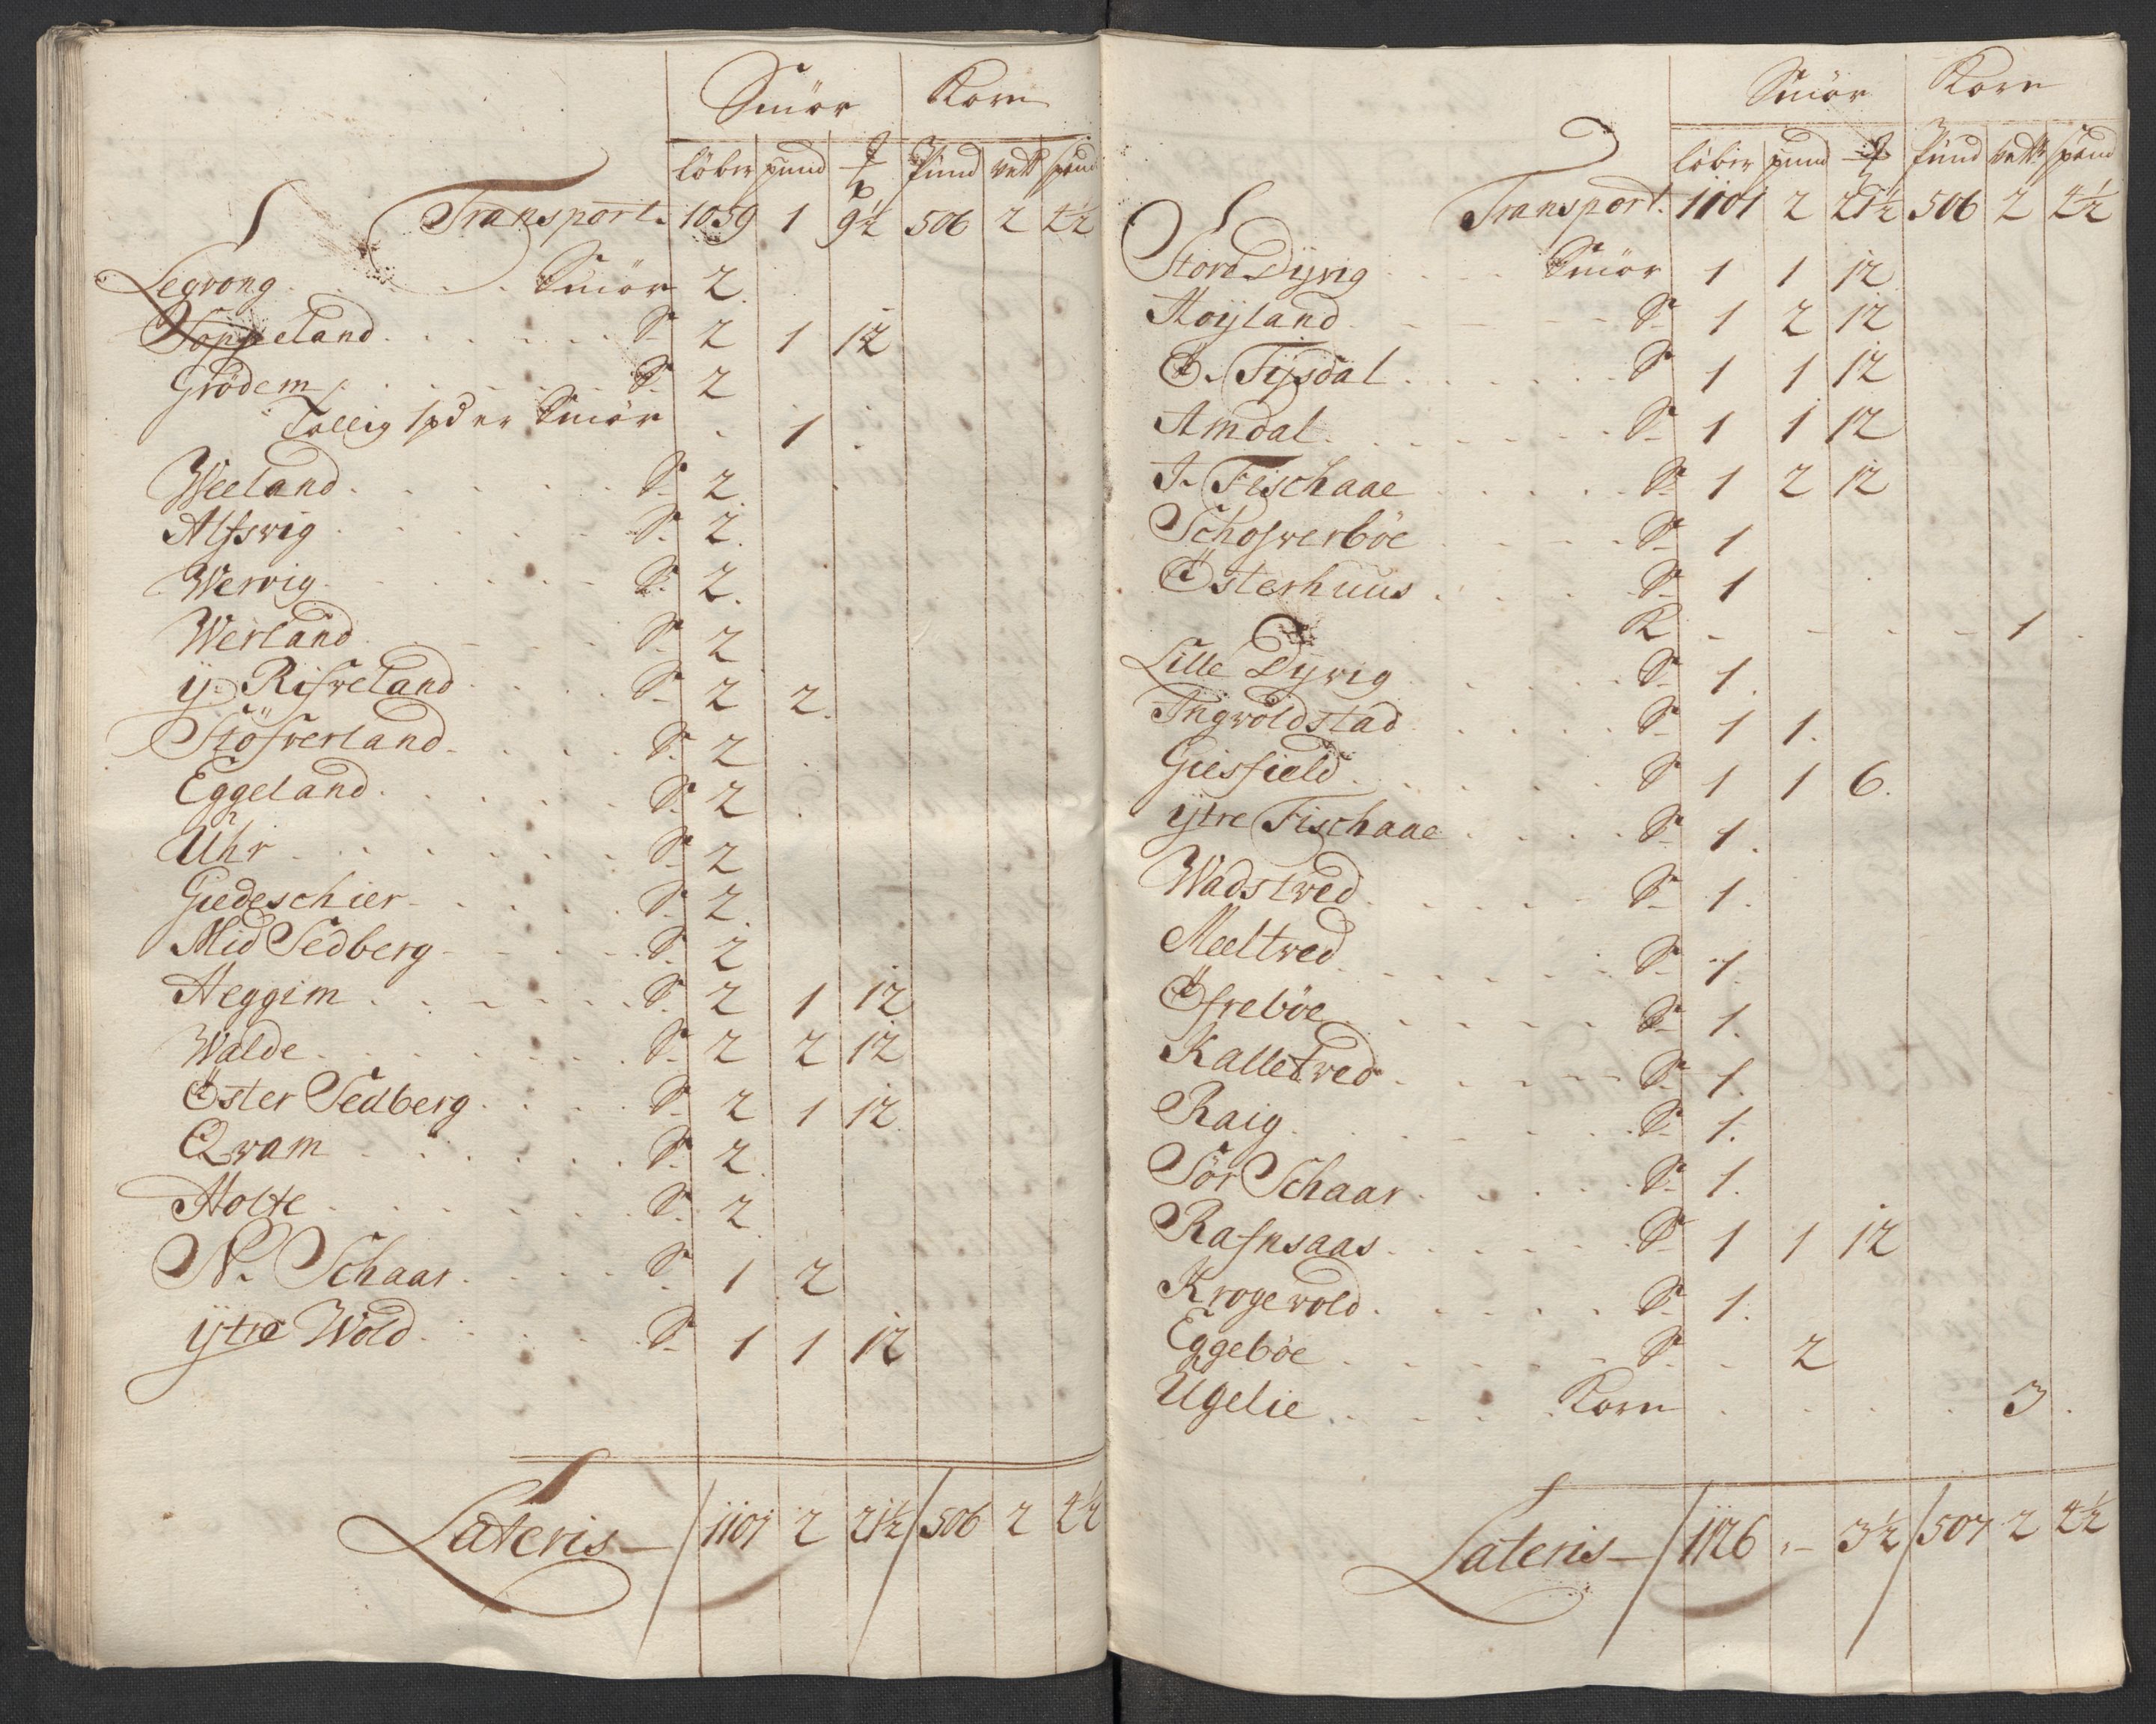 Smör Korn
löber pund ℔ Pund vett spand
Transport. 1059 1 9½ 506 2 4½
Legrong Smör 2
Toppeland S. 2 1 12
Grödem S. 2
Tollig 1 pd er Smör 1
Weeland S. 2
Alfsvig S. 2
Wervig S. 2
Werland S. 2
ÿ. Risveland S. 2 2
Siöfverland S. 2
Eggeland S. 2
Uhr S. 2
Giedeschier S. 2
Mid Sedberg S. 2
Heggim S. 2 1 12
Walde S. 2 2 12
Öster Sedberg S. 2 1 12
Qvam S. 2
Holte S. 2
N. Schaar S. 1 2
ÿtre Wold S. 1 1 12
Lateris 1101 2 21½ 506 2 4½
Smör Korn
löber pund ℔ Pund vett spand
Transport. 1101 2 21½ 506 2 4½
Stora Dyrvig Smör 1 1 12
Høyland S. 1 2 12
Ö. Tysdal S. 1 1 12
Amdal S. 1 1 12
I. Fischaae S. 1 2 12
Schofverböe S. 1
Österhuus S. 1
K 1
Lille Dyrvig S. 1
Ingvoldstad S. 1 1
Giesfield S. 1 1 6
ÿtre Fischaae S. 1
Wadstved S. 1
Meeltved S. 1
Öfreböe S. 1
Kalletved S. 1
Raig S. 1
Sör Schaar S. 1
Rafnsaas S. 1 1 12
Krogevold S. 1
Eggeböe S. 2
Ugelie Korn 3
Lateris 1126 - 3½ 507 2 4½